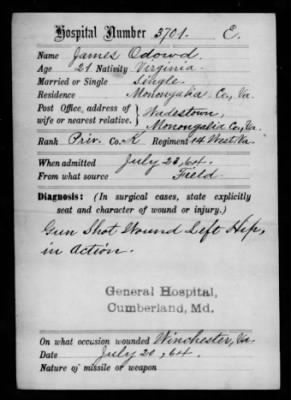 Hospital Number 3701. E.
Name James Odowd.
Age 21 Nativity Virginia.
Married or Single Single.
Residence Monongalia Co, Va.
Post Office, address of
wife or nearest relative. Wadestown,
Monongalia Co, Va.
Rank Priv. Co. K Regiment 14 West. Va.
When admitted July 23, 64.
From what source Field
Diagnosis: (In surgical cases, state explicitly
seat and character of wound or injury.)
Gun Shot Wound Left Hip,
in Action.
General Hospital,
Cumberland, Md.
On what occasion wounded Winchester, Va.
Date July 20, 64.
Nature of missile or weapon